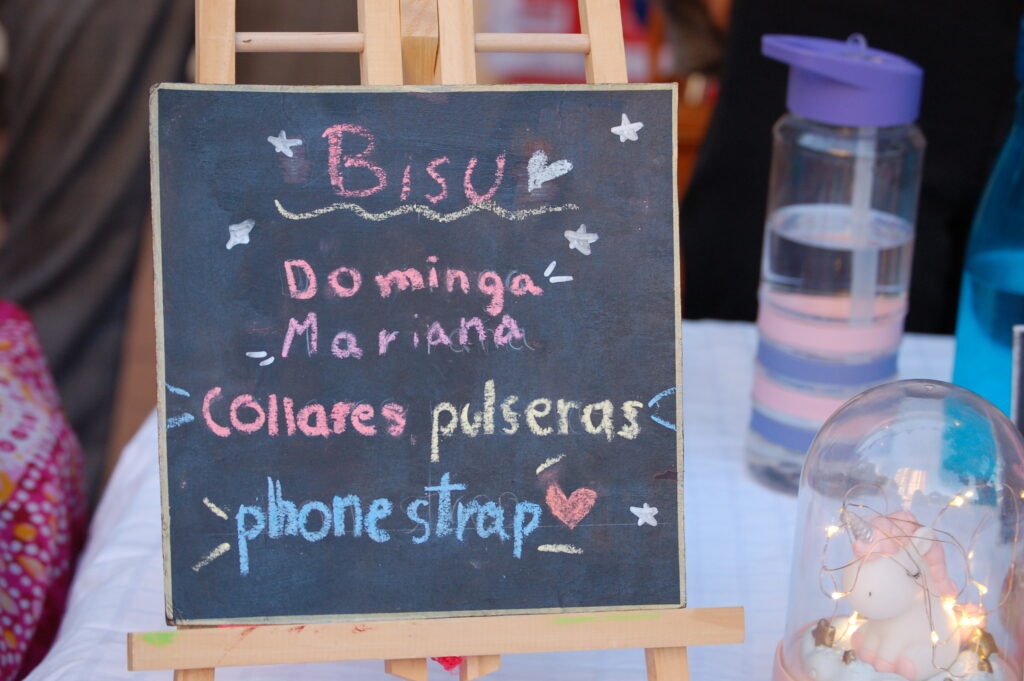 BISU
Dominga
Mariana
Collares pulseras
phone strap